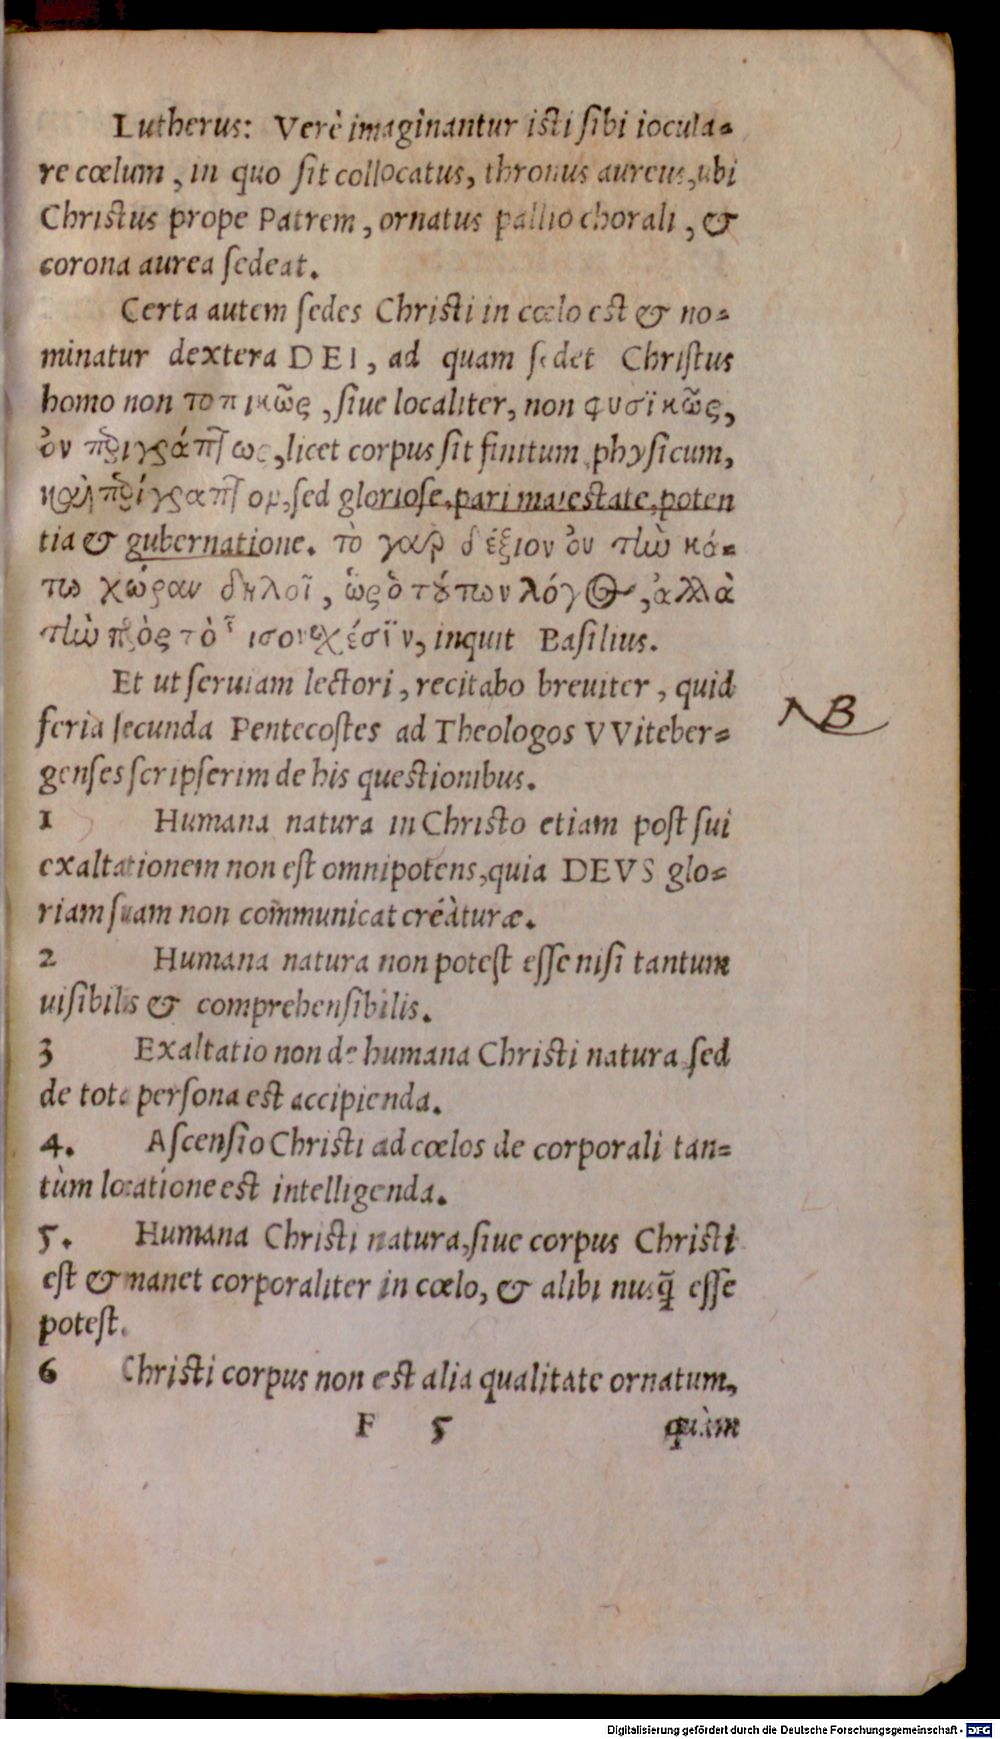 Lutherus: Verè imaginantur isti ſibi iocula=
re cœlum, in quo ſit collocatus, thronus aureus, ubi
Chriſtus prope Patrem, ornatus pallio chorali, &
corona aurea ſedeat.
Certa autem ſedes Chriſti in cœlo eſt & no=
minatur dextera DEI, ad quam ſedet Chriſtus
homo non τοπικῶς, ſiue localiter, non φυσϊκῶς,
ὀυ περιγράπτως, licet corpus ſit finitum phyſicum,
καὶ περίγραπτον, ſed glorioſe, pari maieſtate, poten
tia & gubernatione. τὸ γαρ δέξιον ὀυ τὴν κά=
τω χώραν δηλοῖ, ὡς ὁ τούτων λόγος, ἀλλὰ
τὴν πρὸς τὸ inquit Baſilius.
Et ut ſeruiam lectori, recitabo breuiter, quid
feria ſecunda Pentecoſtes ad Theologos VViteber=
genſes ſcripſerim de his queſtionibus.
NB
1 Humana natura in Chriſto etiam poſt ſui
exaltationem non eſt omnipotens, quia DEVS glo=
riam ſuam non communicat créàturæ.
2 Humana natura non poteſt eſſe niſi tantum
uiſibilis & comprehenſibilis.
3 Exaltatio non de humana Chriſti natura ſed
de tota perſona eſt accipienda.
4. Aſcenſio Chriſti ad cœlos de corporali tan=
tùm locatione eſt intelligenda.
5. Humana Chriſti natura, ſiue corpus Chriſti
eſt & manet corporaliter in cœlo, & alibi nusq̃ eſſe
poteſt.
6 Chriſti corpus non eſt alia qualitate ornatum,
F 5 quàm
Digitalisierung gefördert durch die Deutsche Forschungsgemeinschaft - DFG